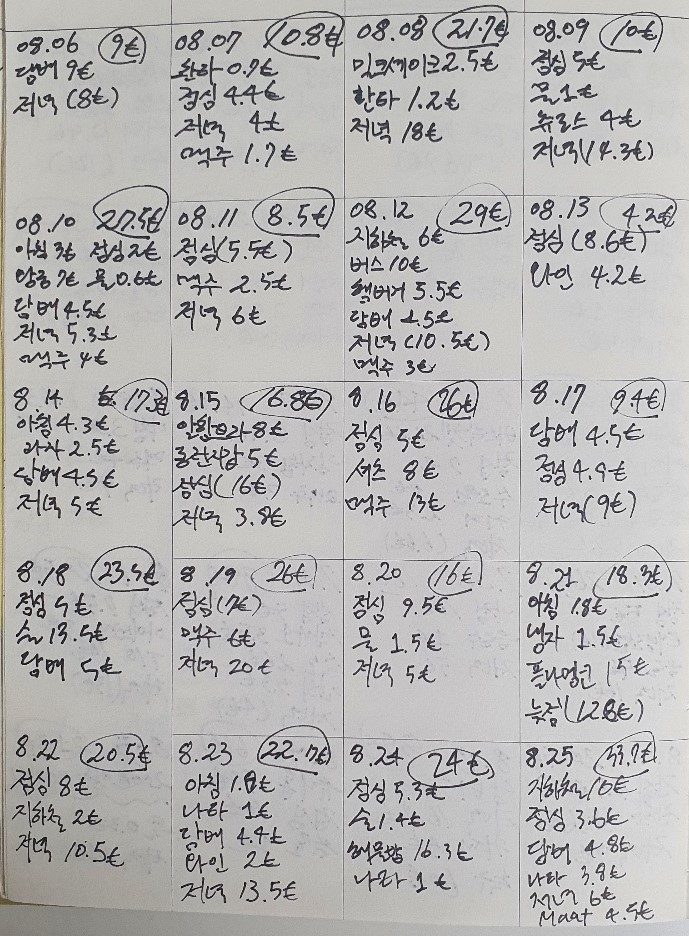 08.06 9€
담배 9€
저녁 (8€)
08.07 10.8€
환타 0.7€
점심 4.4€
저녁 4€
맥주 1.7€
08.08 21.7€
밀크케이크 2.5€
환타 1.2€
저녁 18€
08.09 10€
점심 5€
물 1€
츄로스 4€
저녁(14.3€)
08.10 27.5€
아침 3€ 점심 2€
7€ 물 0.6€
담배 4.5€
저녁 5.3€
맥주 4€
08.11 8.5€
점심(5.5€)
맥주 2.5€
저녁 6€
08.12 29€
지하철 6€
버스 10€
햄버거 5.5€
담배 4.5€
저녁 (10.5€)
맥주 3€
08.13 4.2€
점심 (8.6€)
와인 4.2€
8.14
아침 4.3€
과자 2.5€
담배 4.5€
저녁 5€
8.15 16.8€
알함브라 8€
동굴사람 5€
점심(16€)
저녁 3.8€
8.16 26€
점심 5€
셔츠 8€
맥주 13€
8.17 9.4€
담배 4.5€
점심 4.9€
저녁(9€)
8.18 23.5€
점심 5€
술 13.5€
담배 5€
8.19 26€
점심(7€)
맥주 6€
저녁 20€
8.20 16€
점심 9.5€
물 1.5€
저녁 5€
8.21 18.3€
아침 1.8€
1.5€
플라멩코 15€
늦점(12.8€)
8.22 20.5€
점심 8€
지하철 2€
저녁 10.5€
8.23 22.7€
아침 1.8€
나타 1€
담배 4.4€
와인 2€
저녁 13.5€
8.24 24€
점심 5.3€
술 1.4€
해물밥 16.3€
나타 1€
8.25 33.7€
지하철 10€
점심 3.6€
담배 4.8€
나타 3.8€
저녁 6€
Maat 4.5€